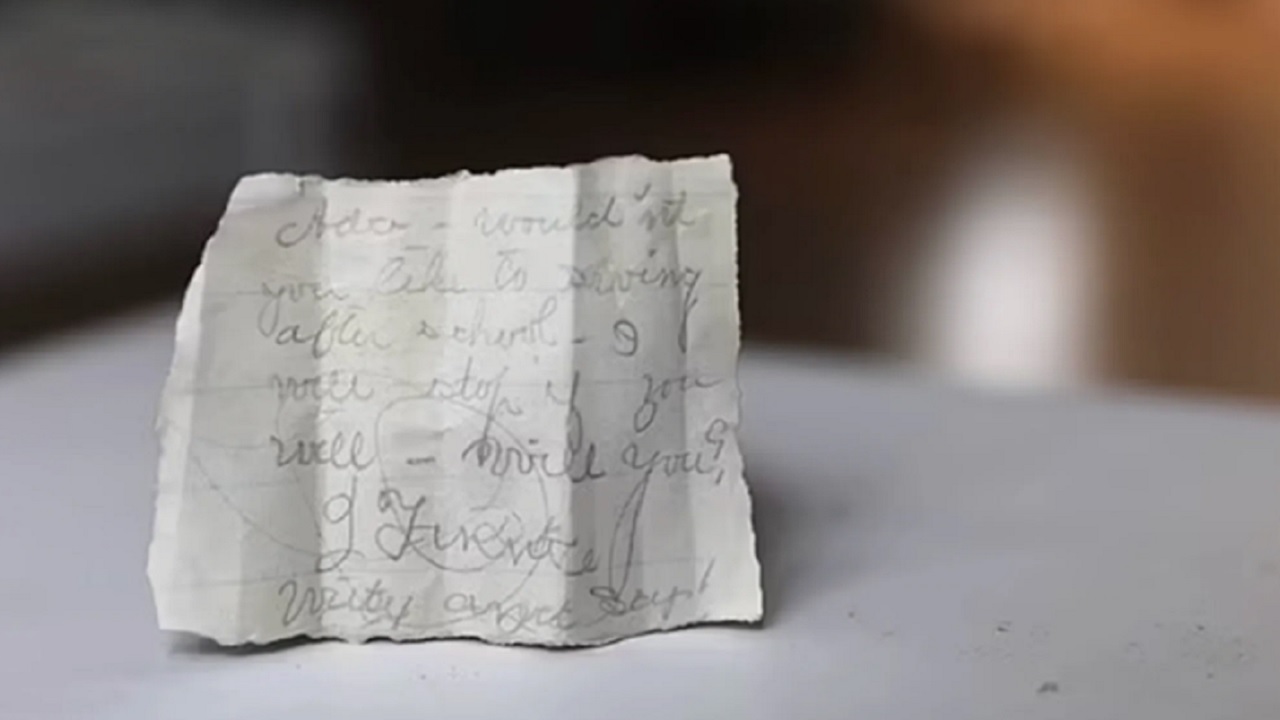 Ada - would'nt
you like to swing
after school - I
will stop if you
will - will you?
I
Write and say